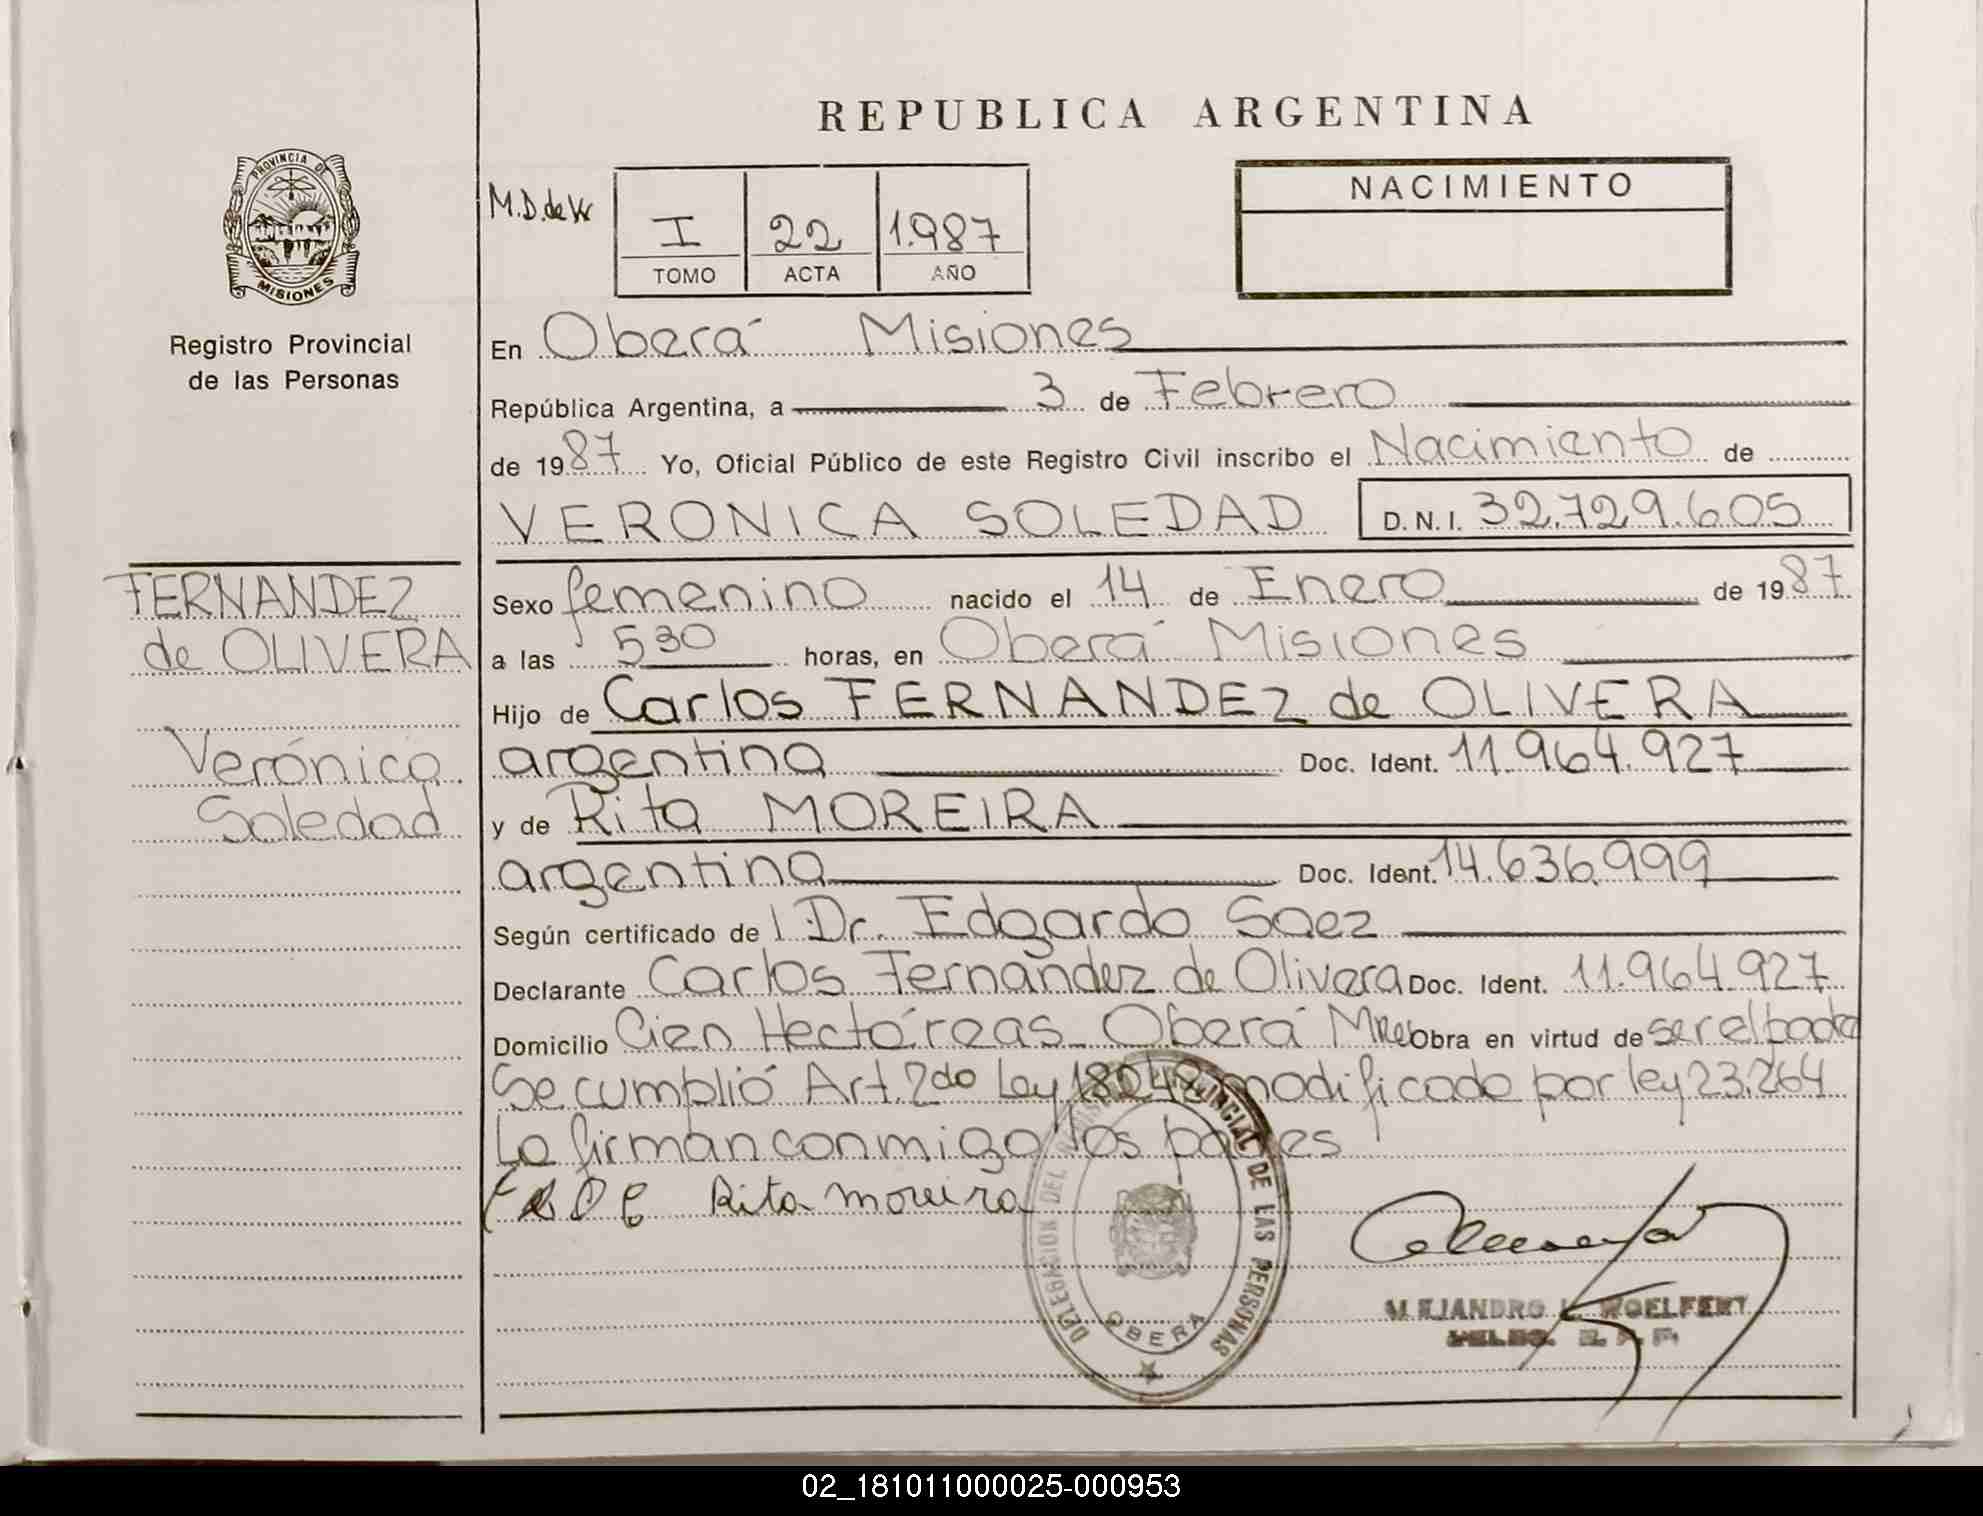 REPUBLICA ARGENTINA
PROVINCIA DE
MISIONES
Registro Provincial
de las Personas
M.D.de
I 22 1.987
TOMO ACTA AÑO
NACIMIENTO
En Oberá Misiones
República Argentina, a 3 de Febrero
de 1987 Yo, Oficial Público de este Registro Civil inscribo el Nacimiento de
VERONICA SOLEDAD D.N.I. 32.729.605
FERNANDEZ
de OLIVERA
Verónica
Soledad
Sexo femenino nacido el 14 de Enero de 1987
a las 530 horas, en Oberá Misiones
Hijo de Carlos FERNANDEZ de OLIVERA
argentina Doc. Ident. 11.964.927
y de Rita MOREIRA
argentina Doc. Ident. 14.636.999
Según certificado de l Dr. Edgardo Saez
Declarante Carlos Fernández de Olivera Doc. Ident. 11.964.927
Domicilio Cien Hectáreas Oberá Obra en virtud de ser el padre
Se cumplió Art. 2do Ley 18248 modificado por ley 23.264
La firman conmigo los padres
Rita Moreira
DELEGACION DEL REGISTRO PROVINCIAL DE LAS PERSONAS
OBERA
ALEJANDRO WOELFERT
02_181011000025-000953